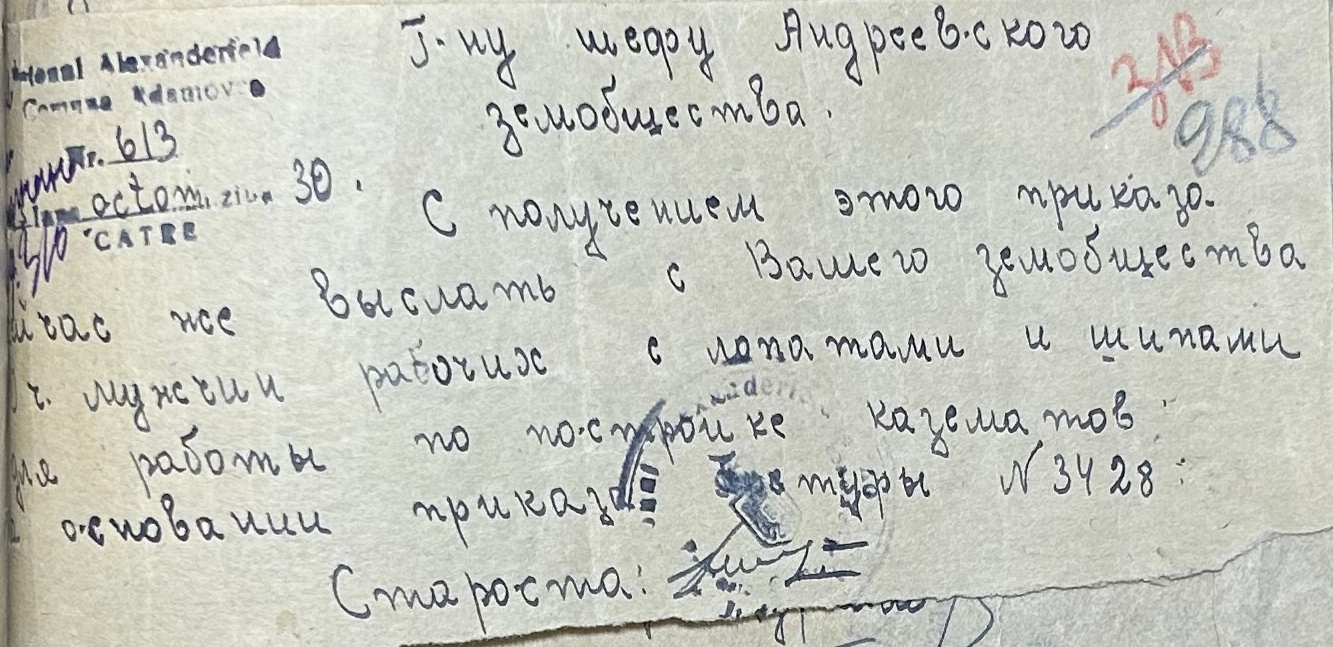 Alexanderfeld
Comuna Adamovca
Nr. 613
octom. ziua 30.
CATRE
Г-ну шефу Андреевского
земобщества.
988
С получением этого приказа.
час же выслать с Вашего земобщества
ч. мужчин рабочих с лопатами и шипами
для работы по постройке казематов
основании приказа N 3428:
Староста: